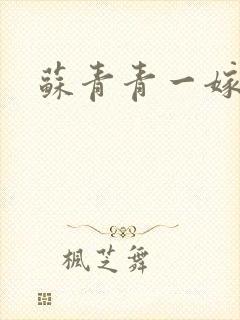 蘇青青一嫁
楓芝舞